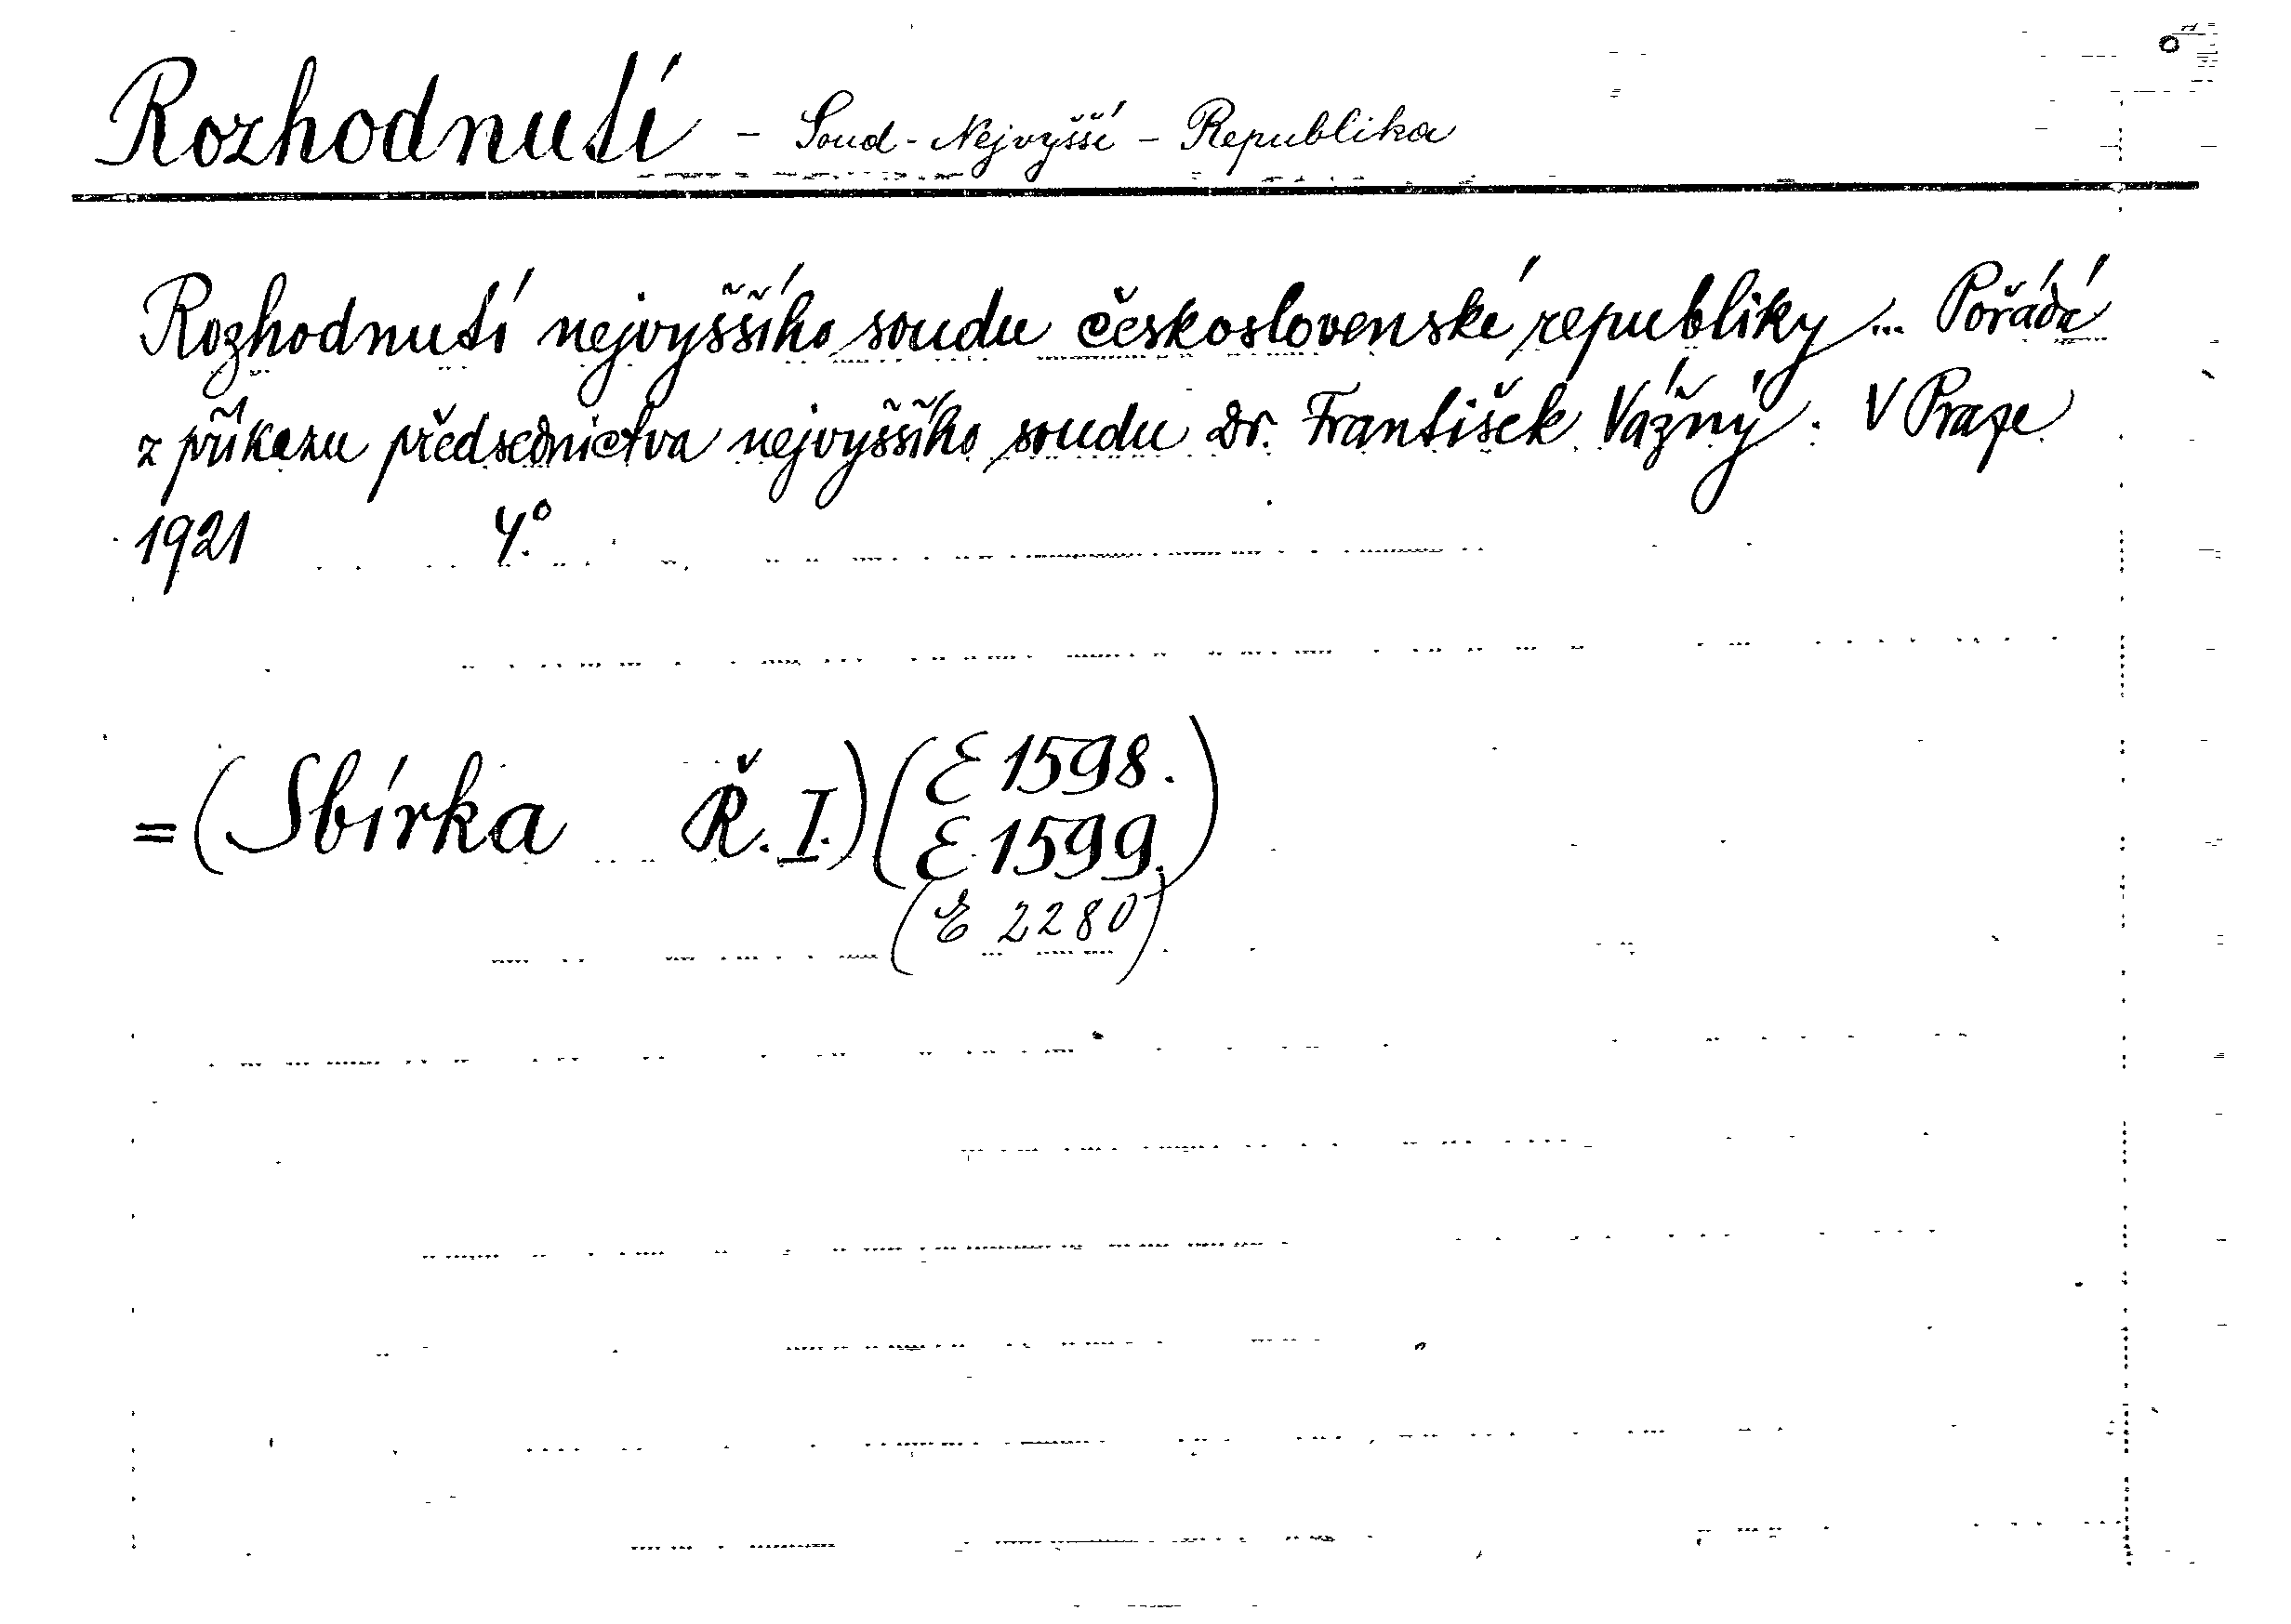 Rozhodnutí - Soud - Nejvyšší - Republika
Rozhodnutí nejvyššího soudu československé republiky ... Pořádá
z příkazu předsednictva nejvyššího soudu Dr. František Vážný. V Praze
1921 4.°
= (Sbírka Ř. I.) (E 1598.
E 1599.)
(E 2280)